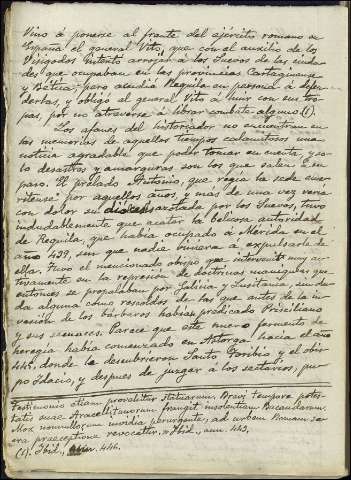 Vino á ponerse al frente del ejército romano en
España el general Vito, que con el auxilio de los
Visigodos intentó arrojar á los Suevos de las ciuda-
des que ocupaban en las provincias Cartaginense
y Bética; pero acudió Requila en persona á defen-
derlas, y obligó al general Vito á huir con sus tro-
pas, por no atreverse á librar combate alguno (1).
Los afanes del historiador no encuentran en
las memorias de aquellos tiempos calamitosos una
noticia agradable que poder tomar en cuenta, y só-
lo desastres y amarguras son los que salen al
paso. El prelado Antonio, que regía la sede eme-
ritense por aquellos años, y más de una vez vería
con dolor su diócesis azotada por los Suevos, tuvo
indudablemente que acatar la belicosa autoridad
de Requila, que había ocupado á Mérida en el
año 439, sin que nadie viniera á expulsarle de
ella. Tuvo el mencionado obispo que intervenir muy ac-
tivamente en la represión de doctrinas maniqueas que
entonces se propalaban por Galicia y Lusitania, sin du-
da alguna como rescoldos de las que antes de la in-
vasión de los bárbaros habían predicado Prisciliano
y sus secuaces. Parece que este nuevo fermento de
heregía había comenzado en Astorga hacia el año
445, donde la descubrieron Santo Toribio y el obis-
po Idacio, y despues de juzgar á los sectarios, pu-
Testimonio etiam provehitur Statuarum. Brevi tempore potes-
tatis suae Aracellitanorum frangit insolentiam Bacaudarum.
Mox nonnullorum invidia perurgente, ad urbem Romam sa-
cra praeceptione revocatur. » Ibid., ann. 443.
(1). Ibid., ann. 446.